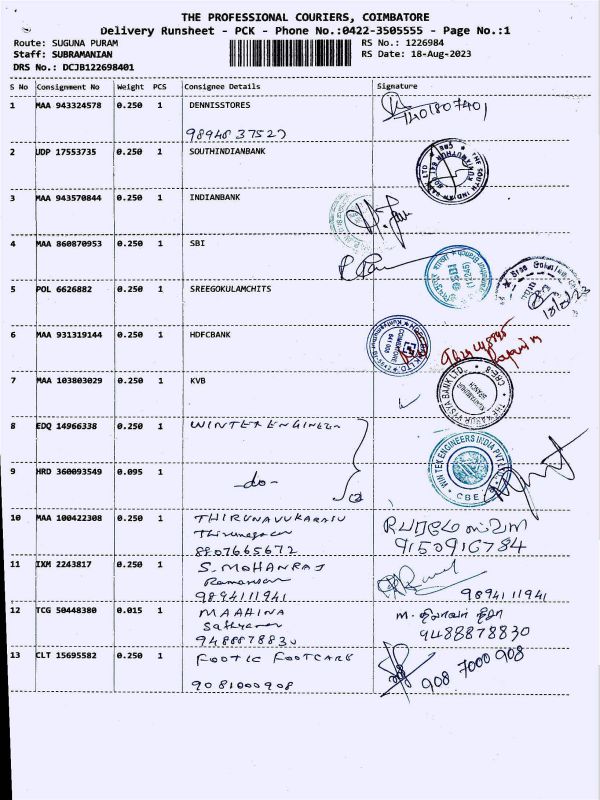 THE PROFESSIONAL COURIERS, COIMBATORE
Delivery Runsheet - PCK - Phone No.:0422-3505555 - Page No.:1
Route: SUGUNA PURAM
RS No.: 1226984
Staff: SUBRAMANIAN
RS Date: 18-Aug-2023
DRS No.: DCJB122698401
S No Consignment No Weight PCS Consignee Details Signature
1 MAA 943324578 0.250 1 DENNISSTORES
2 UDP 17553735 0.250 1 SOUTHINDIANBANK
THE SOUTH INDIAN BANK LTD
3 MAA 943570844 0.250 1 INDIANBANK
4 MAA 860870953 0.250 1 SBI
5 POL 6626882 0.250 1 SREEGOKULAMCHITS
18/8/23
6 MAA 931319144 0.250 1 HDFCBANK
7 MAA 103803029 0.250 1 KVB
THE KARUR VYSYA BANK LTD. CBE-8
8 EDQ 14966338 0.250 1 WINTEX ENGINEER
WIN TEX ENGINEERS INDIA PVT LTD
CBE
9 HRD 360093549 0.095 1 -do-
10 MAA 100422308 0.250 1 THIRUNAVUKARASU
8907665672 9150916784
11 IXM 2243817 0.250 1 S. MOHANRAJ
9894111941 9894111941
12 TCG 50448380 0.015 1 MAAHINA
9488878830 9488878830
13 CLT 15695582 0.250 1 FOOTIC FOOTCARE
9081000908 908 7000 908